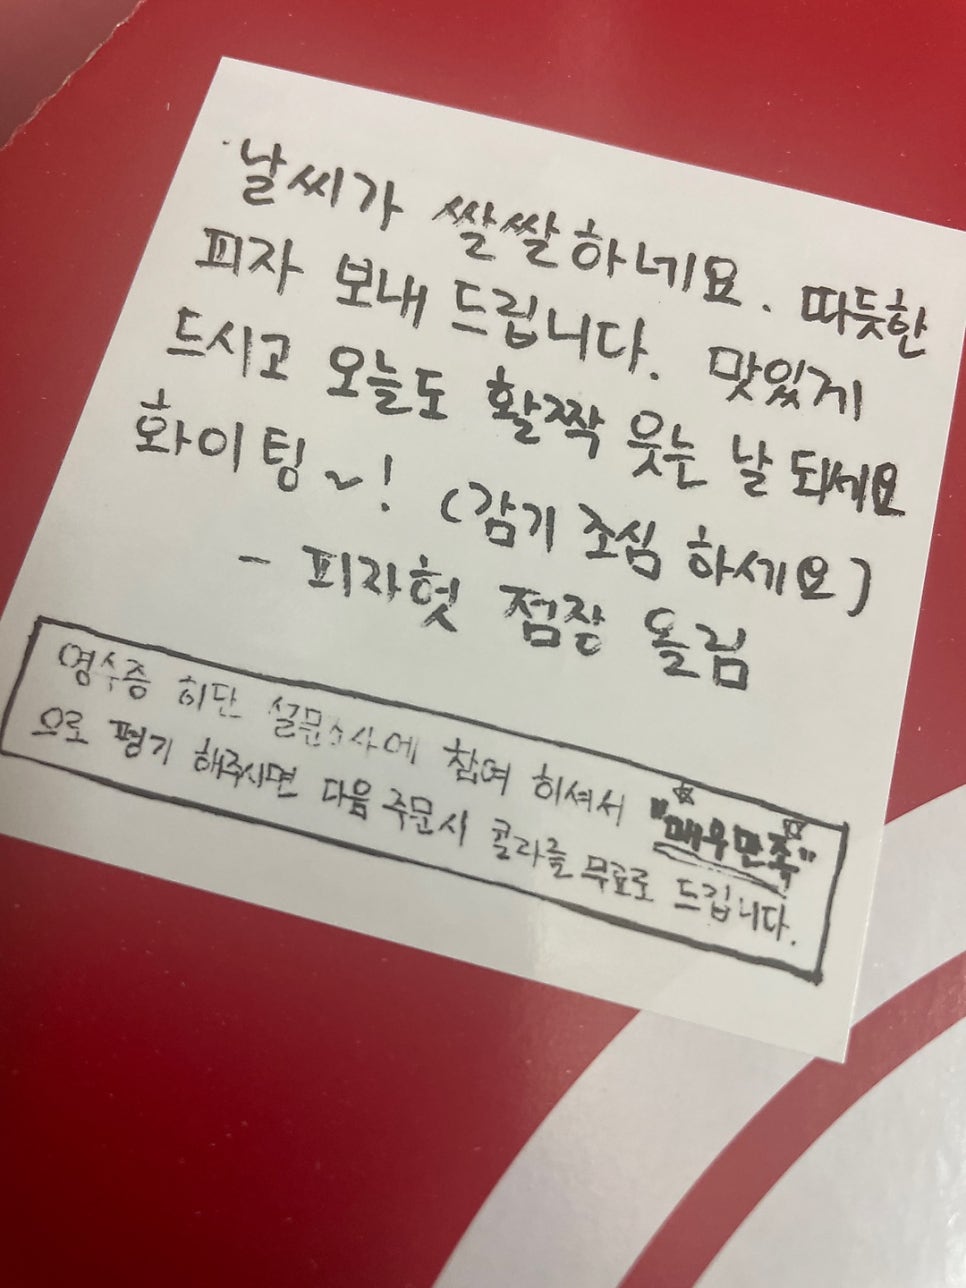 날씨가 쌀쌀하네요. 따듯한
피자 보내 드립니다. 맛있게
드시고 오늘도 활짝 웃는 날 되세요
화이팅~! (감기 조심 하세요)
- 피자헛 점장 올림
영수증 하단 설문조사에 참여 하셔서 "매우만족"
으로 평가 해주시면 다음 주문시 콜라를 무료로 드립니다.